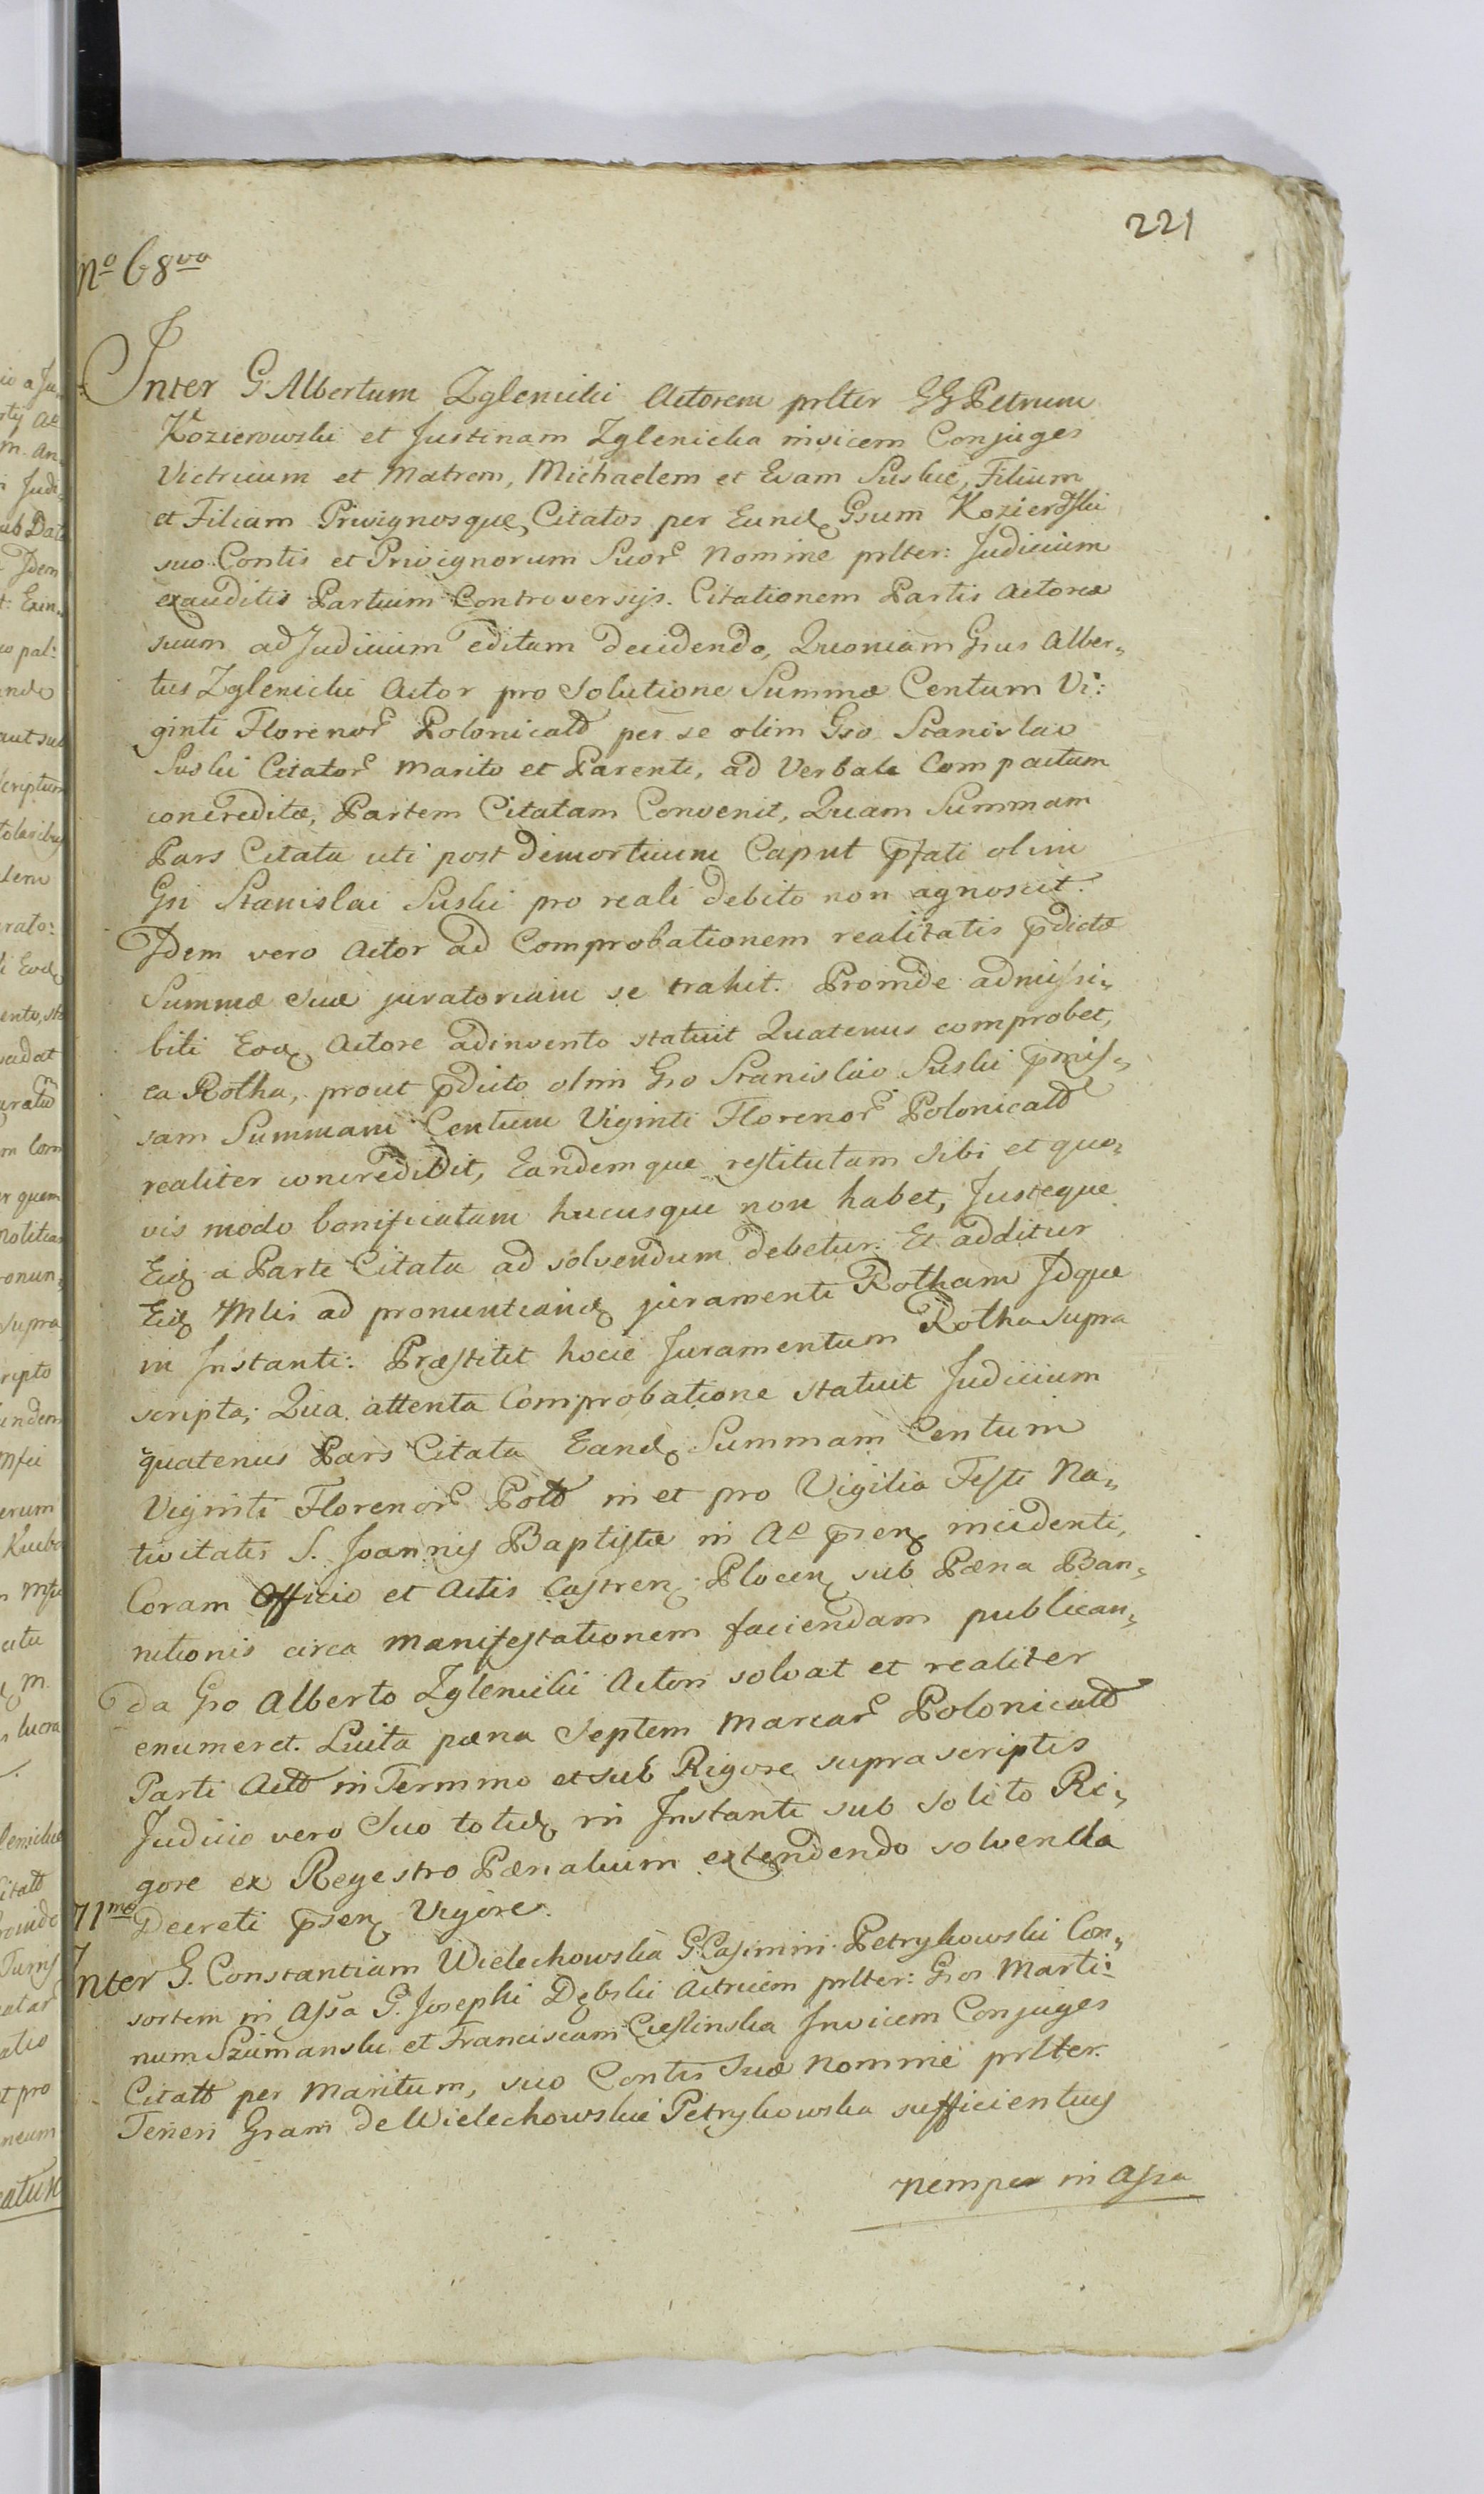 221
nº 68vo
Inter G. Albertum Zglenicki Actorem prlter GG Petrum
Kozierowski et Justinam Zglenicka invicem Conjuges
Victricum et Matrem, Michaelem et Evam Suskie, Filium
et Filiam Privignosque, Citatos per Eund. Gsum Kozierowski
suo Contis et Privignorum Suor. Nomine prlter: Judicium
exauditis Partium Controversijs. Citationem Partis Actorea
suum ad Judicium editam decidendo, Quoniam Gsus Alber„
tus Zglenicki Actor pro Solutione Summæ Centum Vi:
ginti Florenor. Polonicalium per se olim Gso Stanislao
Suski Citator. Marito et Parenti, ad Verbale Compactum
concreditæ, Partem Citatam Convenit, Quam Summam
Pars Citata uti post demortuum Caput pfati olim
Gsi Stanislai Suski pro reali debito non agnoscit.
Idem vero Actor ad Comprobationem realitatis pdictæ
Summæ Suæ juratoriam se trahit. Proinde admissi„
bili Eod. Actore adinvento statuit Quatenus comprobet,
ea Rotha, prout pdicto olim Gso Stanislao Suski pmis„
sam Summam Centum Viginti Florenor. Polonical.
realiter concredidit, Eandemque restitutam Sibi et quo„
vis modo bonificatam hucusque non habet, Justeque
Eid. a Parte Citata ad solvendum debetur. Et additur
Eid. Mlis ad pronuntiand. juramenti Rotham Idque
in Instanti: Præstitit hocce Juramentum Rotha supra
scripta; Qua attenta Comprobatione statuit Judicium
quatenus Pars Citata Eand. Summam Centum
Viginti Florenor. Pol. in et pro Vigilia Festi Na„
tivitatis S. Joannis Baptistæ in Aº psen. incidenti,
Coram Officio et Actis Castren. Plocen. sub Pæna Ban„
nitionis circa Manifestationem faciendam publican„
da Gso Alberto Zglenicki Actori solvat et realiter
enumeret. Luita pæna Septem Marcar. Polonical.
Parti Act. in Termino et sub Rigore supra scriptis
Judicio vero Suo totid. in Instanti sub solito Ri„
gore ex Regestro Pænalium extendendo solvenda
Decreti psen. Vigore.
71mo
Inter G. Constantiam Wielechowska G. Casimiri Petrykowski Con„
sortem in Assa G. Josephi Dębski Actricem prlter: Gsos Marti:
num Szumanski et Franciscam Cieslinska Invicem Conjuges
Citat. per Maritum, suo Contis Suæ nomine prlter.
Teneri Gsam de Wielechowskie Petrykowska sufficientius
nempe in Assa